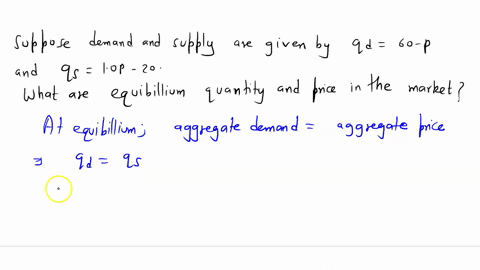 Suppose demand and supply are given by qd = 60-P
and qs = 1.0P - 20.
What are equibillium quantity and price in the market?
At equibillium; aggregate demand = aggregate price
⇒ qd = qs